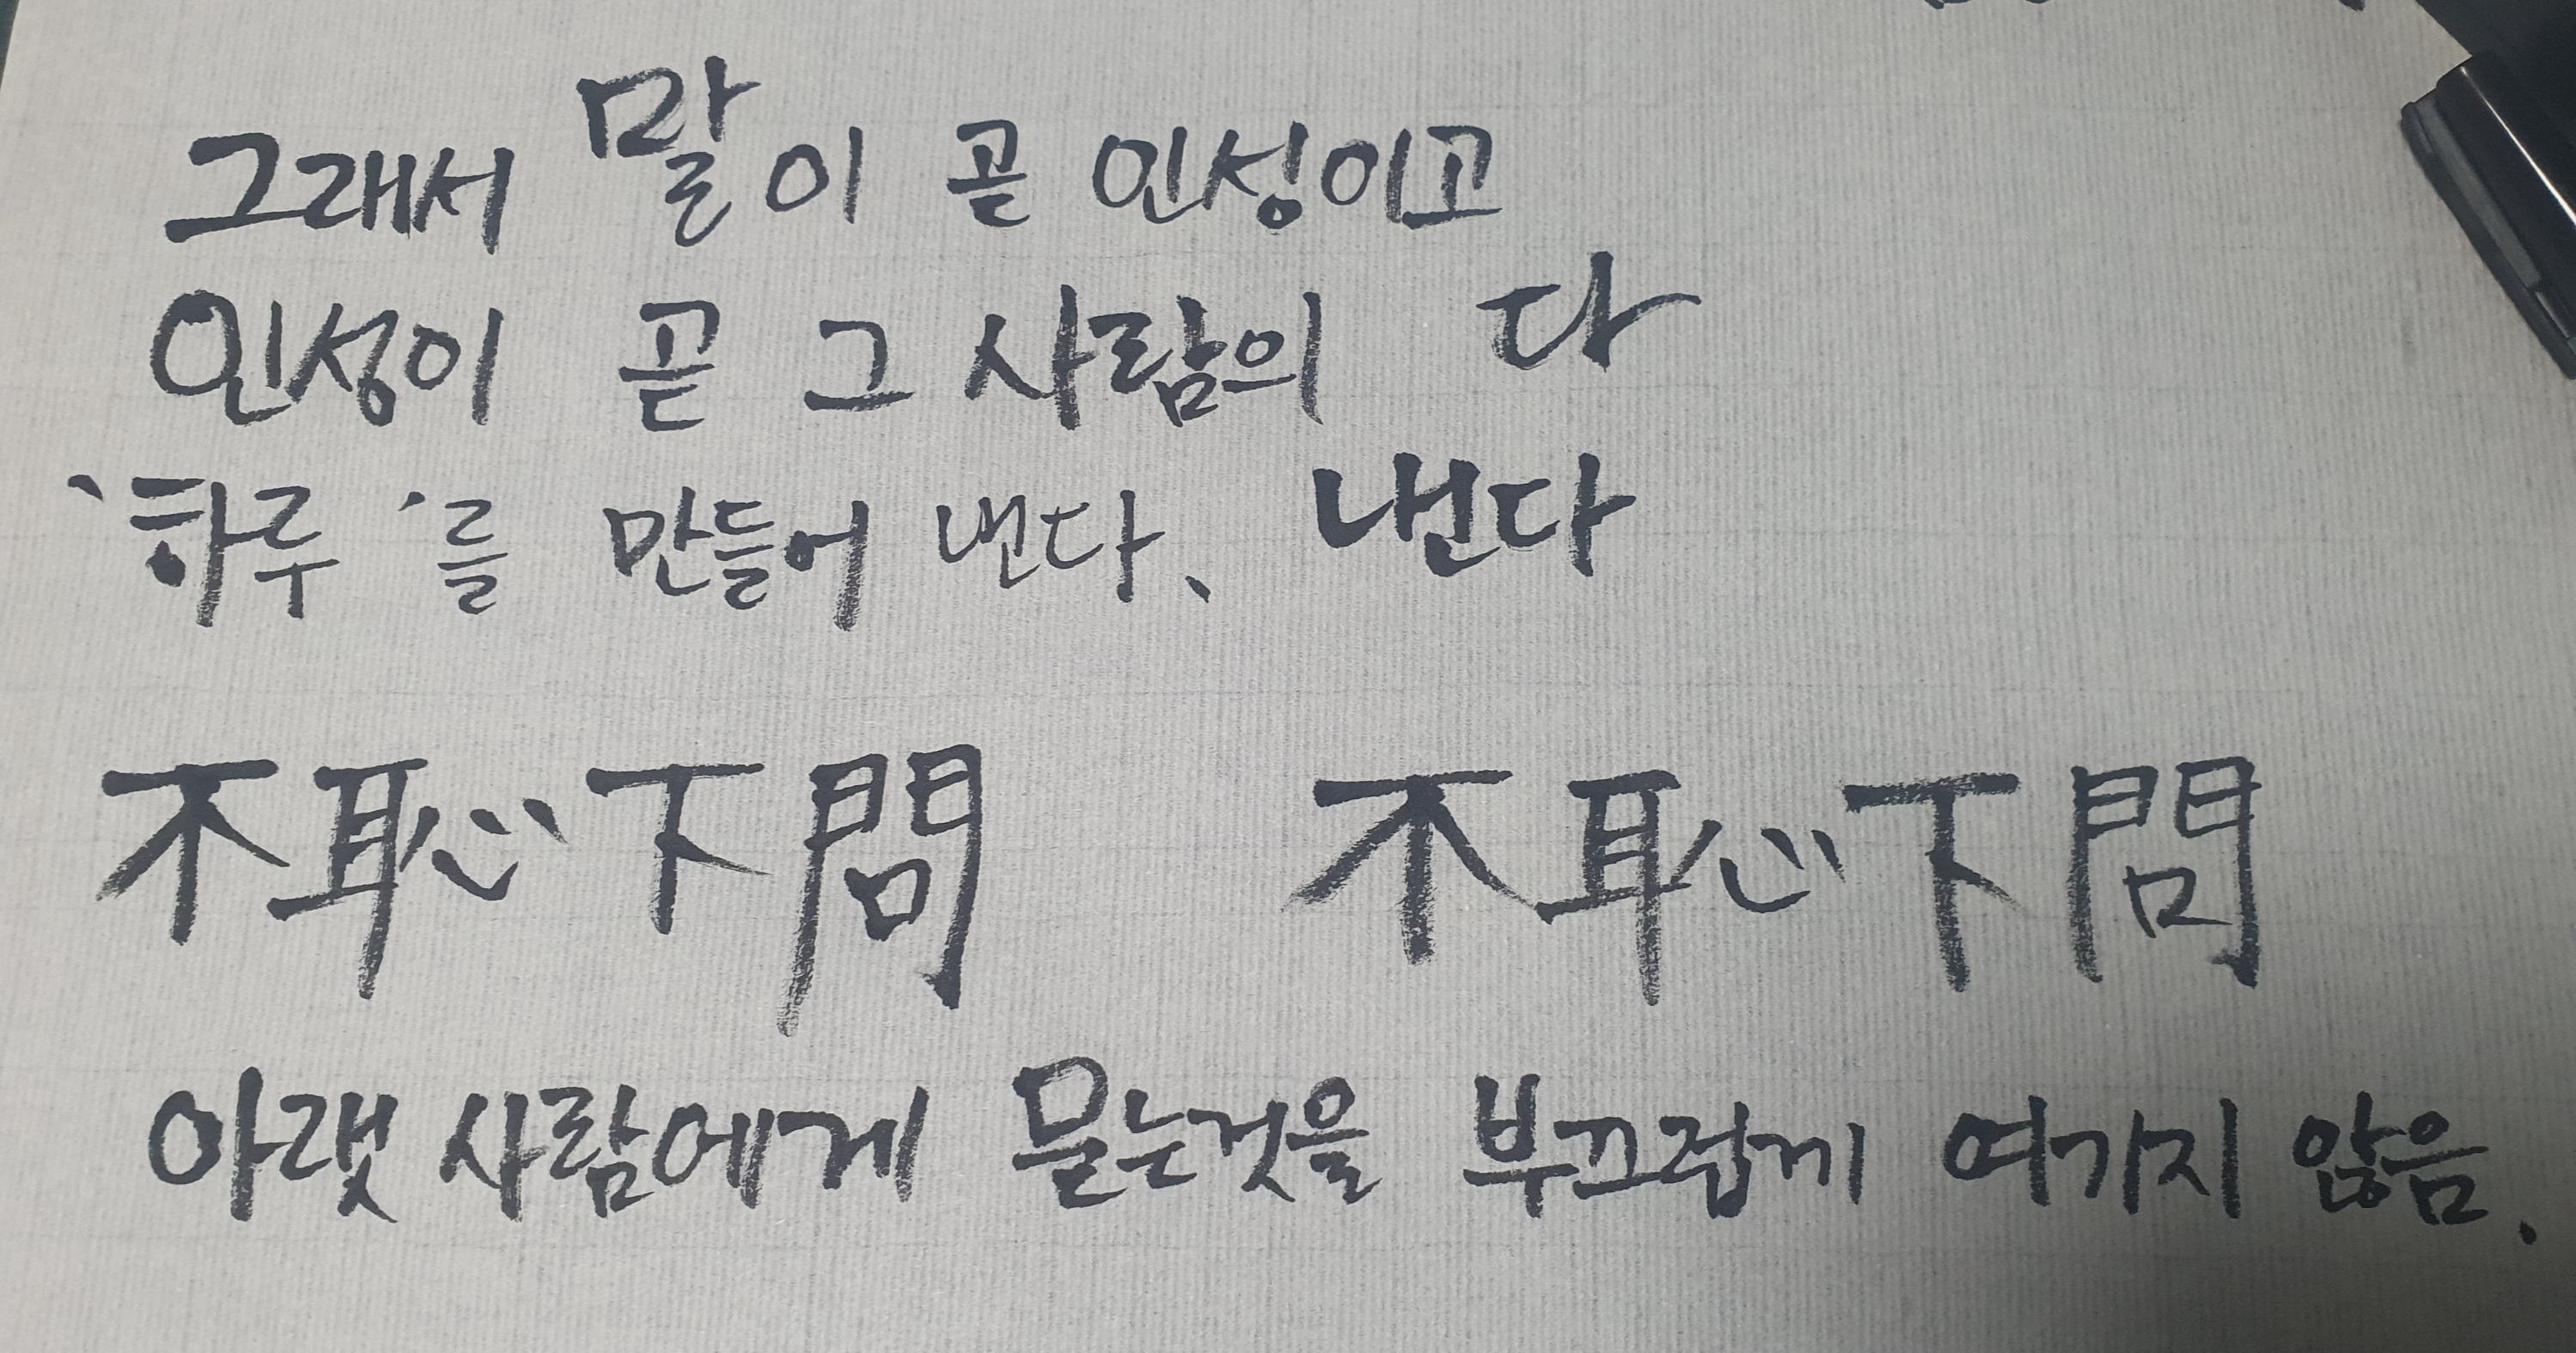 그래서 말이 곧 인성이고
인성이 곧 그 사람의 다
'하루'를 만들어 낸다. 낸다
不恥下問 不恥下問
아랫 사람에게 묻는것을 부끄럽게 여기지 않음.